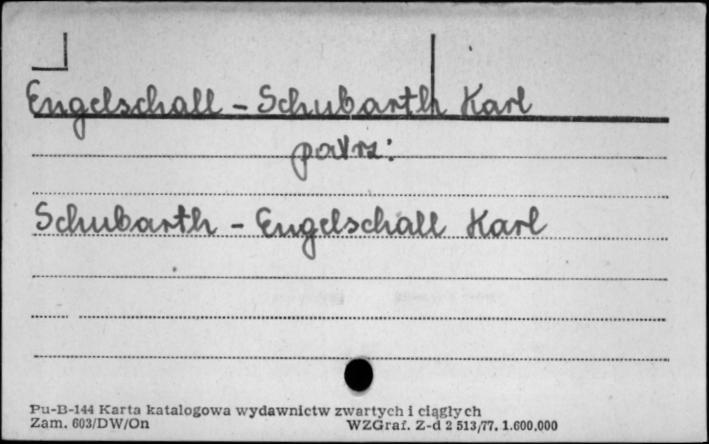 Engelschall - Schubarth Karl
patrz:
Schubarth - Engelschall Karl
Pu-B-144 Karta katalogowa wydawnictw zwartych i ciągłych
Zam. 603/DW/On WZGraf. Z-d 2 513/77. 1.600.000